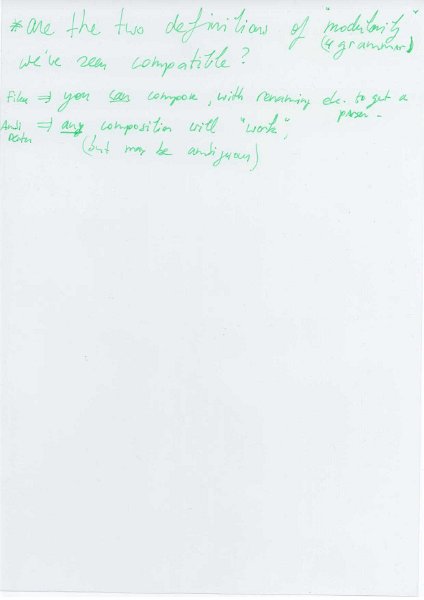 * are the two definitions of "modularity"
(of grammars)
we've seen compatible?
⇒ you can compose, with renaming etc. to get a
parser.
⇒ any composition will "work",
(but may be ambiguous)